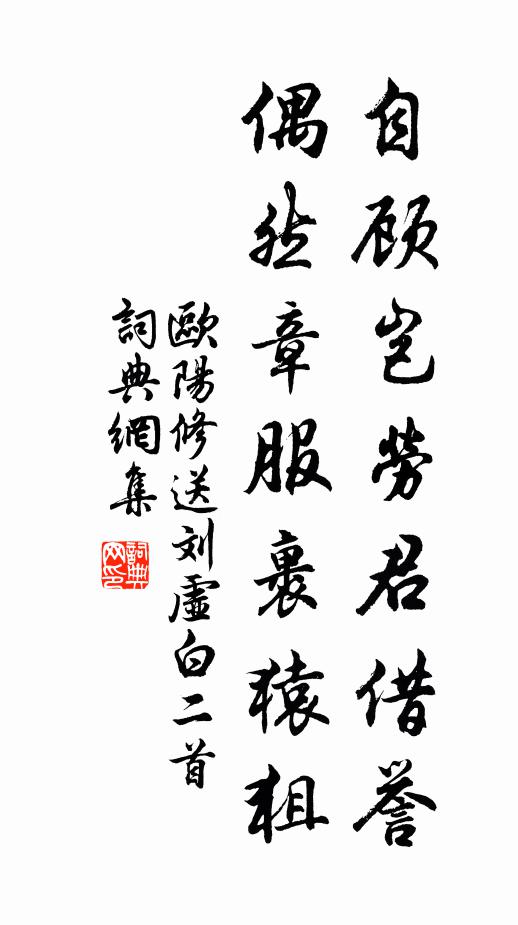 自顾岂勞君借誉
偶然章服裹猿狙
歐陽修送刘虚白二首
詞典網集
詞典网印